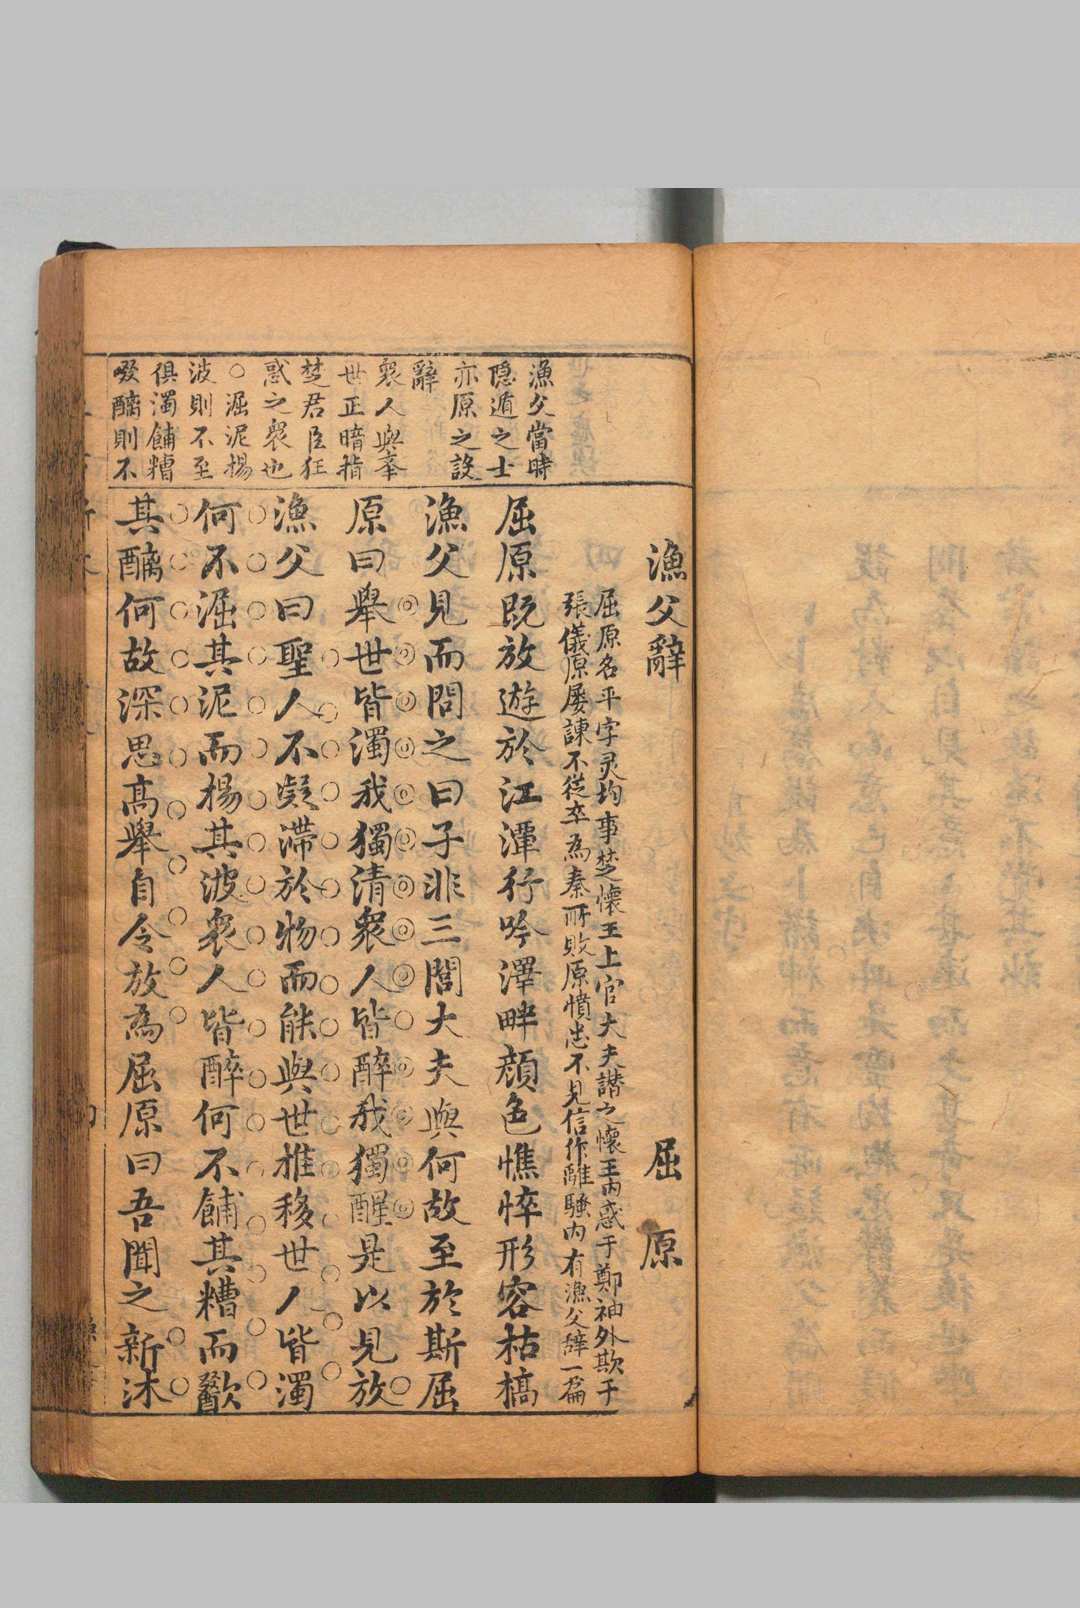 漁父辭
屈原
屈原名平字灵均事楚懷王上官大夫譛之懷王内惑于鄭袖外欺于
張儀原屡諫不從卒為秦所敗原憤忠不見信作離騷内有漁父辞一篇
屈原既放遊於江潭行吟澤畔顔色憔悴形容枯槁
漁父見而問之曰子非三閭大夫與何故至於斯屈
原曰舉世皆濁我獨清衆人皆醉我獨醒是以見放
漁父曰聖人不凝滞於物而能與世推移世人皆濁
何不淈其泥而揚其波衆人皆醉何不餔其糟而歠
其醨何故深思高舉自令放為屈原曰吾聞之新沐
漁父當時
隐遁之士
亦原之設
辭
衆人與舉
世正暗指
楚君臣狂
惑之衆也
○淈泥揚
波則不至
俱濁餔糟
啜醨則不